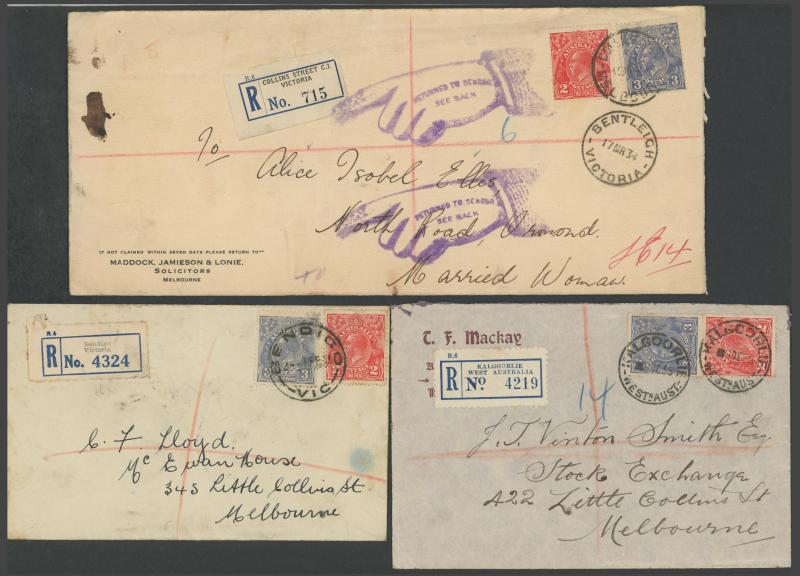 R.6
COLLINS STREET C.1.
VICTORIA
R No. 715
RETURNED TO SENDER
SEE BACK
AUSTRALIA
2 2
POSTAGE
TWO PENCE
3 3
BENTLEIGH
17 MR 34
VICTORIA
6
To Alice Isobel Elles,
North Road, Ormond.
Married Woman.
RETURNED TO SENDER
SEE BACK
IF NOT CLAIMED WITHIN SEVEN DAYS PLEASE RETURN TO
MADDOCK, JAMIESON & LONIE,
SOLICITORS
MELBOURNE
R.6
Bendigo
Victoria
R No. 4324
BENDIGO
VIC
C. F. Lloyd.
Mc Ewan House
343 Little Collins St
Melbourne
T. F. Mackay
R.6
KALGOORLIE
WEST AUSTRALIA
R No 4219
KALGOORLIE
WESTN AUST
KALGOORLIE
WESTN AUST
14
J. T. Vinton Smith Esq
Stock Exchange
422 Little Collins St
Melbourne